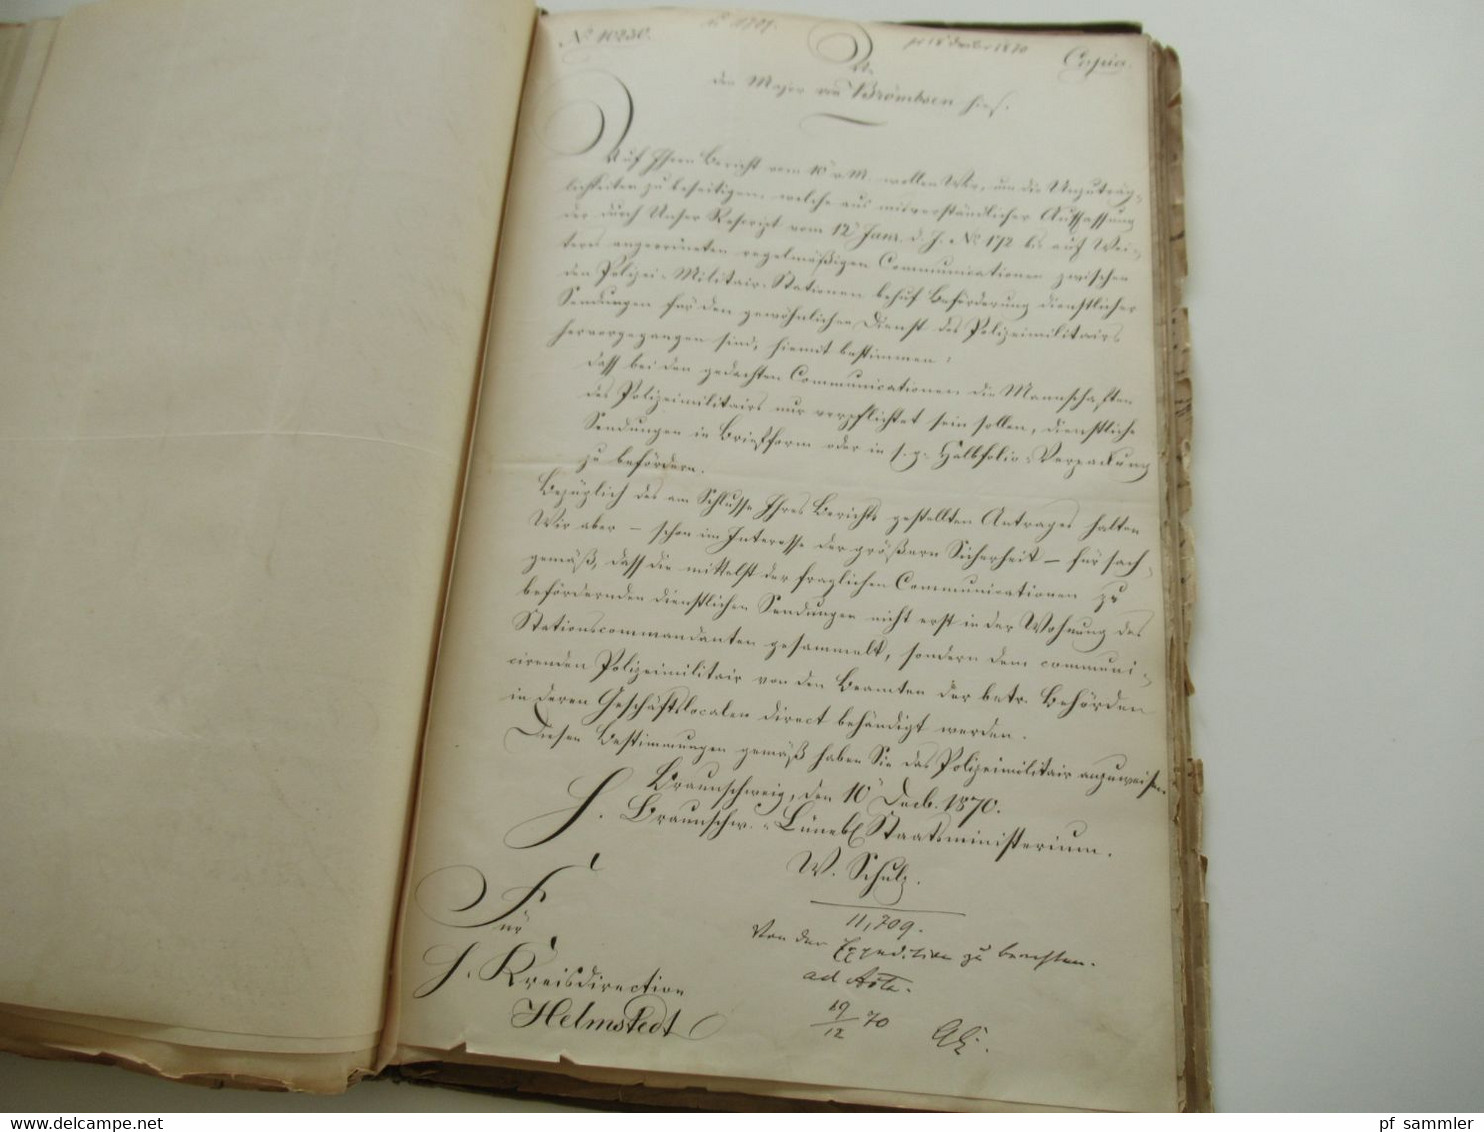 No 10230.
No 11709.
pr 18 Decbr 1870
Copia.
An
den Major von Brömbsen hies.
Auf Ihren Bericht vom 10 v. M. wollen Wir, um die Unzuträg-
lichkeiten zu beseitigen, welche aus misverständlicher Auffassung
der durch Unser Rescript vom 12 Janr. d. J. No 172 bis auf Wei-
teres angeordneten regelmäßigen Communicationen zwischen
den Polizei-Militair-Stationen behuf Beförderung dienstlicher
Sendungen für den gewöhnlichen Dienst des Polizeimilitairs
hervorgegangen sind, hiemit bestimmen:
daß bei den gedachten Communicationen die Mannschaften
des Polizeimilitairs nur verpflichtet sein sollen, dienstliche
Sendungen in Briefform oder in s. g. Halbfolio-Verpackung
zu befördern.
Bezüglich des am Schlusse Ihres Berichts gestellten Antrages halten
Wir aber – schon im Interesse der größern Sicherheit – für sach-
gemäß, daß die mittelst der fraglichen Communicationen zu
befördernden dienstlichen Sendungen nicht erst in der Wohnung des
Stationscommandanten gesammelt, sondern dem communi-
cirenden Polizeimilitair von den Beamten der betr. Behörden
in deren Geschäftslocalen direct behändigt werden.
Diesen Bestimmungen gemäß haben Sie das Polizeimilitair anzuweisen.
Braunschweig, den 10 Decb. 1870.
H. Braunschw.-Lüneb. Staatsministerium.
W. Schulz.
11,709.
Von der Expedition zu beachten.
ad Acta.
19/12 70
Für
H. Kreisdirection
Helmstedt
pf sammler